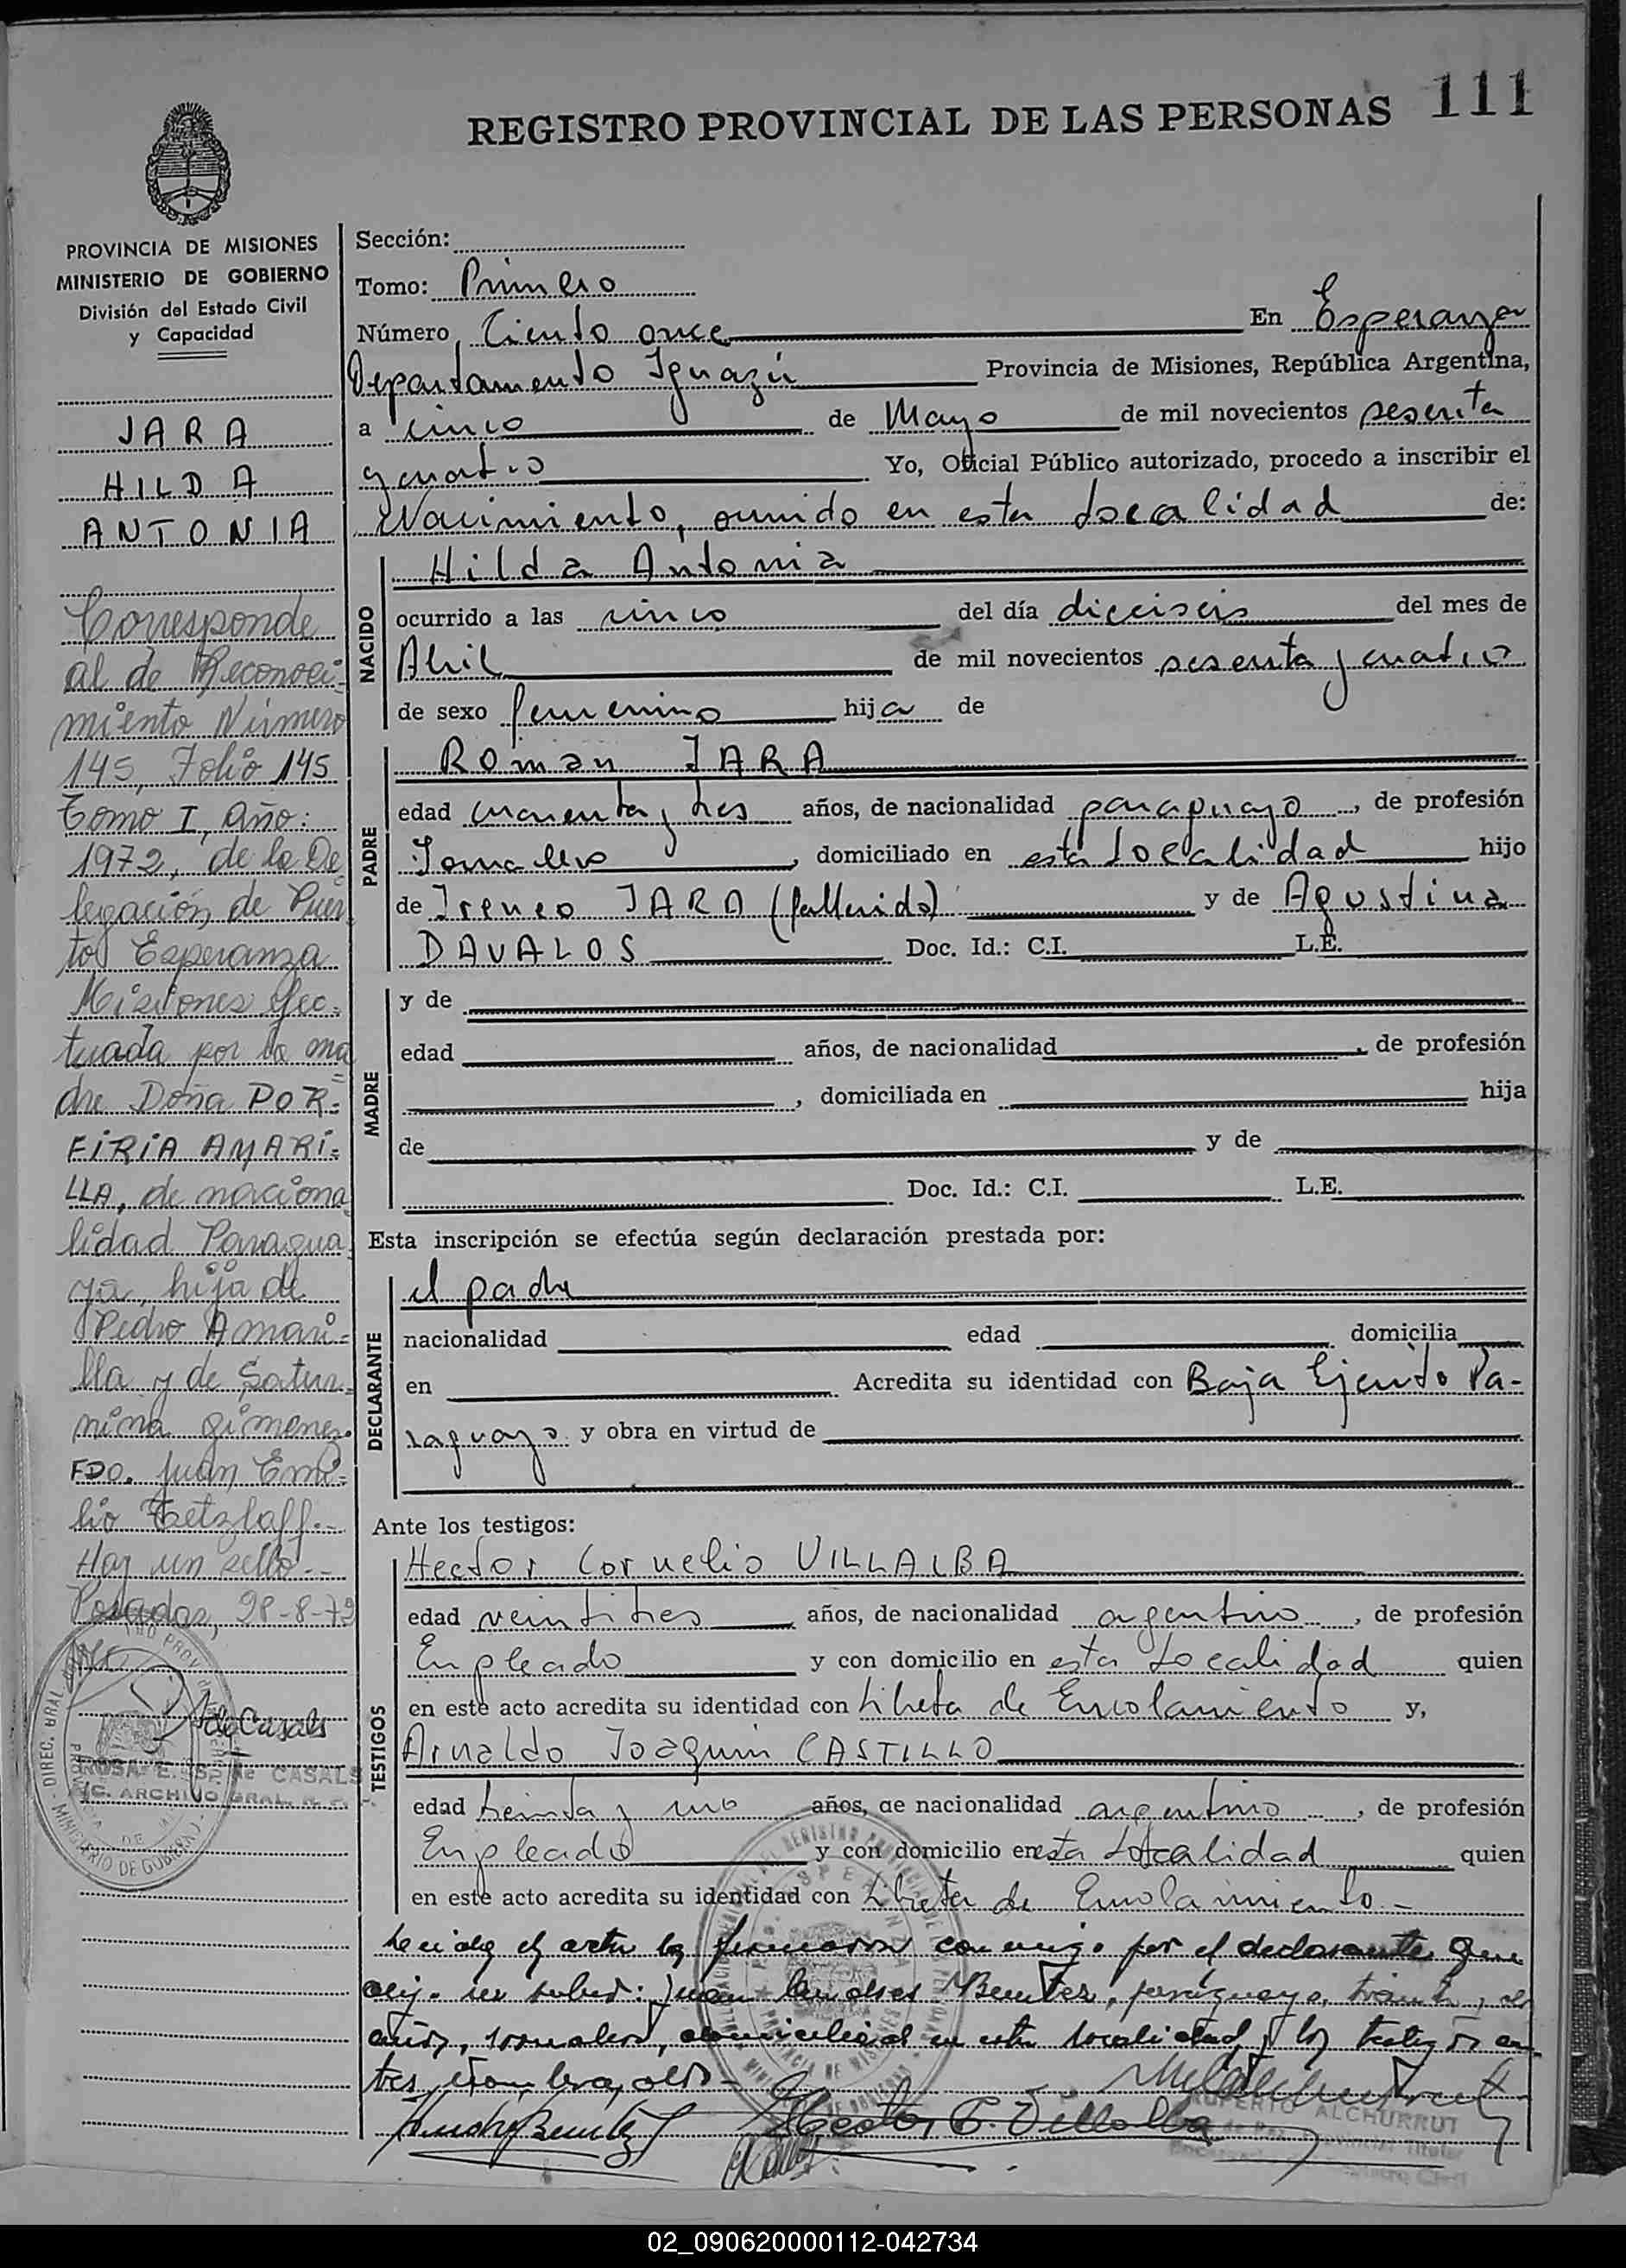 111
REGISTRO PROVINCIAL DE LAS PERSONAS
PROVINCIA DE MISIONES
MINISTERIO DE GOBIERNO
División del Estado Civil
y Capacidad
JARA
HILDA
ANTONIA
Corresponde
al de Reconoci-
miento Número
145, Folio 145
Tomo I, Año:
1972, de la De
legación de Puer
to Esperanza
Misiones efec-
tuada por la ma
dre Doña POR-
FIRIA AMARI-
LLA, de naciona
lidad Paragua
ya, hija de
Pedro Amari-
lla y de Satur-
nina Gimenez.
FDO. Juan Emi-
lio Tetzlaff.-
Hay un sello.--
Posadas, 28-8-72
de Casals
ROSA E. ESP. de CASALS
ARCHIVO GRAL. R. P.
Sección:
Tomo: Primero
Número Ciento once En Esperanza
Departamento Iguazú Provincia de Misiones, República Argentina,
a cinco de Mayo de mil novecientos sesenta
y cuatro Yo, Oficial Público autorizado, procedo a inscribir el
Nacimiento, ocurrido en esta Localidad de:
NACIDO
Hilda Antonia
ocurrido a las cinco del día dieciseis del mes de
Abril de mil novecientos sesenta y cuatro
de sexo femenino hija de
PADRE
Román JARA
edad cuarenta y tres años, de nacionalidad paraguayo, de profesión
Jornalero, domiciliado en esta Localidad hijo
de Ireneo JARA (fallecido) y de Agustina
DAVALOS Doc. Id.: C.I. L.E.
MADRE
y de
edad años, de nacionalidad, de profesión
, domiciliada en hija
de y de
Doc. Id.: C.I. L.E.
Esta inscripción se efectúa según declaración prestada por:
DECLARANTE
el padre
nacionalidad edad domicilia
en Acredita su identidad con Baja Ejercito Pa-
raguayo y obra en virtud de
Ante los testigos:
TESTIGOS
Hector Cornelio VILLALBA
edad veintitres años, de nacionalidad argentino, de profesión
Empleado y con domicilio en esta Localidad quien
en este acto acredita su identidad con Libreta de Enrolamiento y,
Arnaldo Joaquin CASTILLO
edad treinta y uno años, de nacionalidad argentino, de profesión
Empleado y con domicilio en esta Localidad quien
en este acto acredita su identidad con Libreta de Enrolamiento.-
Leida el acta la firmaron conmigo por el declarante que
dijo no saber: Juan Benitez, paraguayo, treinta y
años, jornalero, domiciliado en esta localidad, y los testigos an-
tes nombrados.-
Hector C. Villalba
RUPERTO ALCHURRUT
02_090620000112-042734